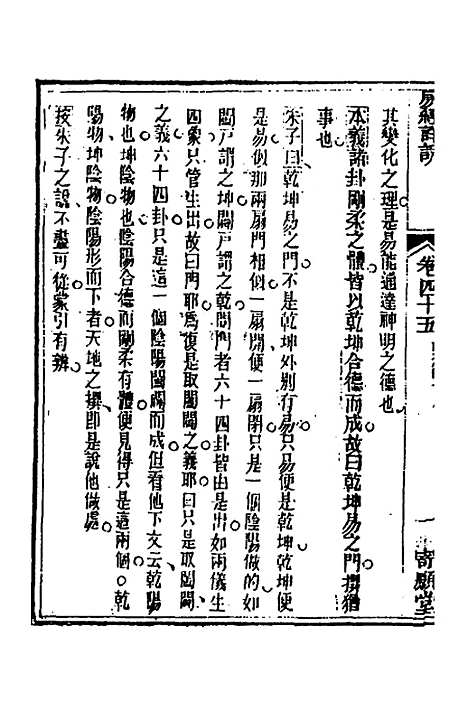 易經詳說
卷四十五
一
寄願堂
其變化之理是易能通達神明之德也
本義諸卦剛柔之體皆以乾坤合德而成故曰乾坤易之門撰猶
事也
朱子曰乾坤易之門不是乾坤外別有易只易便是乾坤乾坤便
是易似那兩扇門相似一扇開便一扇閉只是一個陰陽做的如
闔戶謂之坤闢戶謂之乾問門者六十四卦皆由是出如兩儀生
四象只管生出故曰門耶為復是取闔闢之義耶曰只是取闔闢
之義六十四卦只是這一個陰陽闔闢而成但看他下文云乾陽
物也坤陰物也陰陽合德而剛柔有體便見得只是這兩個○乾
陽物坤陰物陰陽形而下者天地之撰即是說他做處
按朱子之說不盡可從蒙引有辨